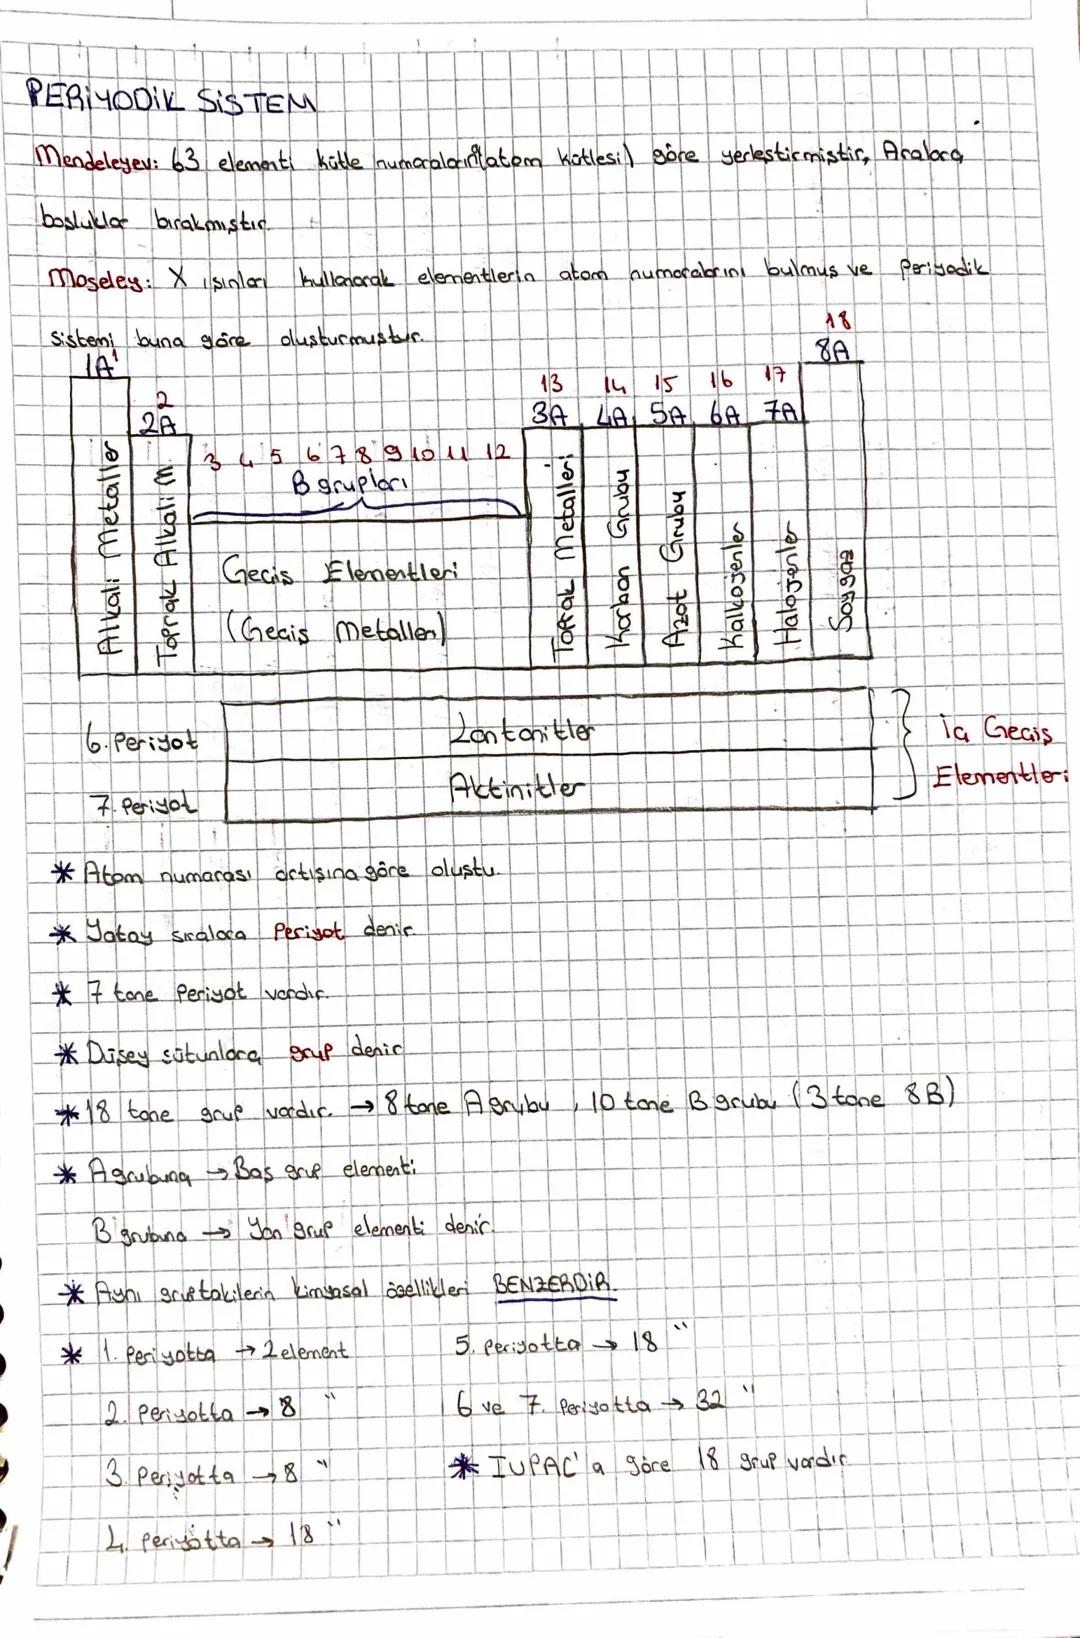 PERİYODİK SİSTEM
Mendeleyev: 63 elementi kütle numaralarına(atom kütlesi) göre yerleştirmiştir, Aralara
boşluklar bırakmıştır.
Moseley: X ışınları kullanarak elementlerin atom numaralarını bulmuş ve Periyodik
sistemi buna göre oluşturmuştur.
18
1A 1 8A
2 13 14 15 16 17
2A 3A 4A 5A 6A 7A
3 4 5 6 7 8 9 10 11 12
B grupları
Alkali Metaller
Toprak Alkali M.
Geçiş Elementleri
(Geçiş Metaller)
Toprak Metalleri
Karbon Grubu
Azot Grubu
Kalkojenler
Halojenler
Soygaz
6. Periyot Lantanitler İç Geçiş
7. Periyot Aktinitler Elementleri
* Atom numarası artışına göre oluştu.
* Yatay sıralara Periyot denir.
* 7 tane Periyot vardır.
* Düşey sütunlara grup denir.
* 18 tane grup vardır. → 8 tane A grubu, 10 tane B grubu (3 tane 8B)
* A grubuna → Baş grup elementi
B grubuna → Yan grup elementi denir.
* Aynı gruptakilerin kimyasal özellikleri BENZERDİR.
* 1. Periyotta → 2 element 5. Periyotta → 18 "
2. Periyotta → 8 " 6 ve 7. Periyotta → 32 "
3. Periyotta → 8 " * IUPAC'a göre 18 grup vardır.
4. Periyotta → 18 "